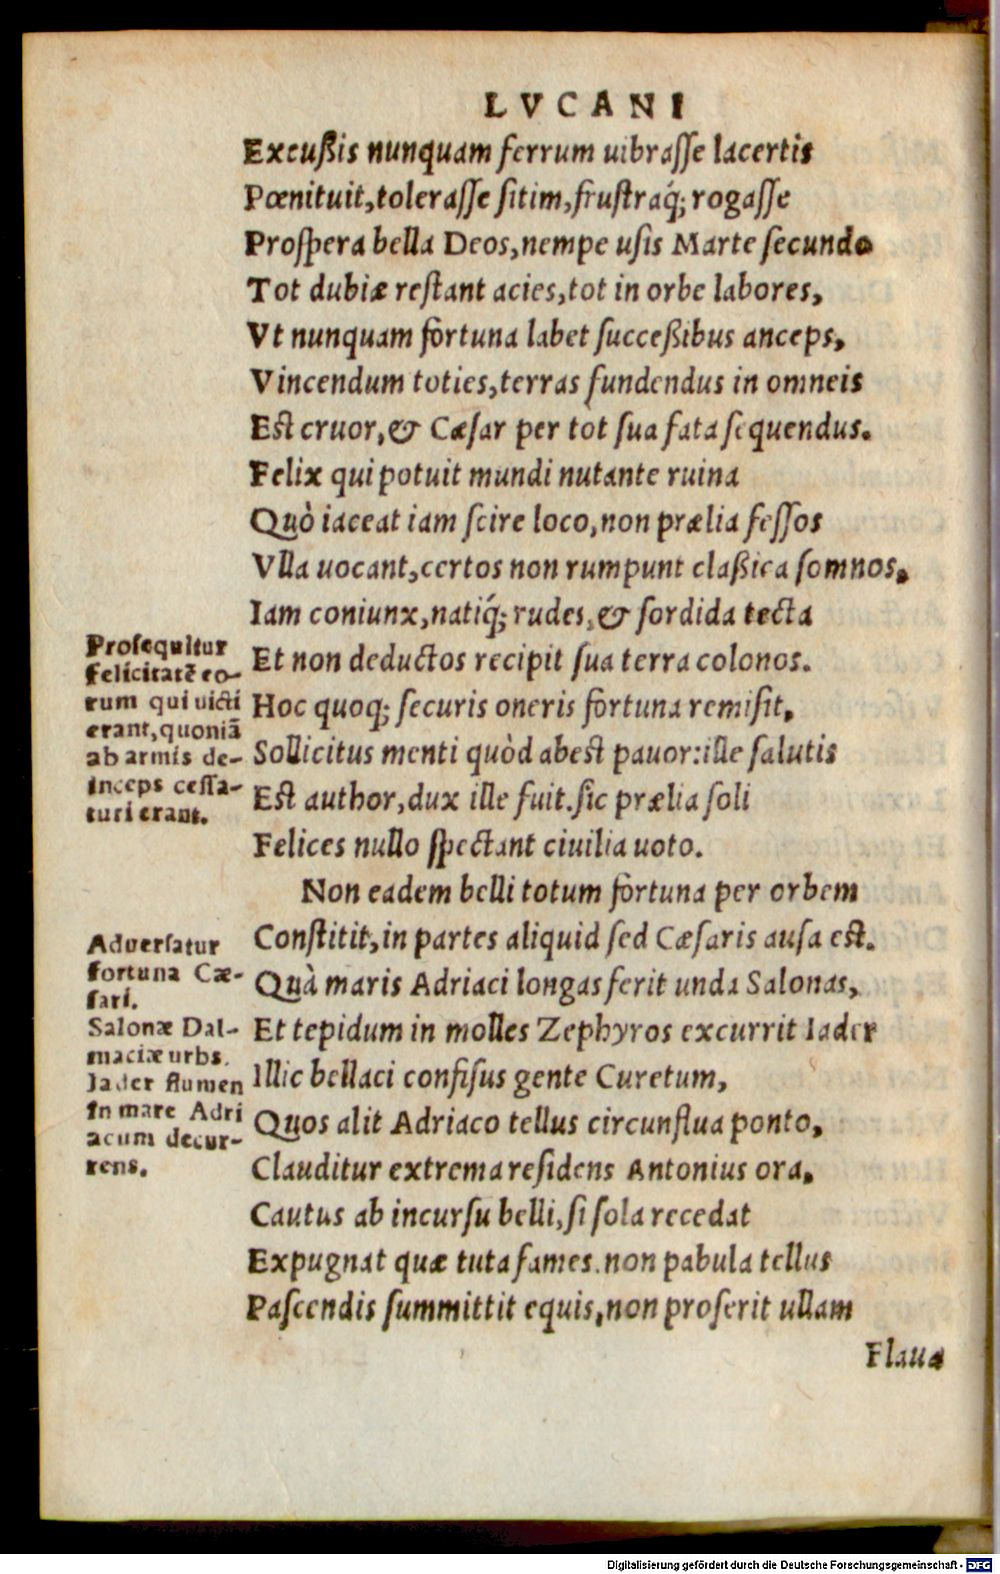 LVCANI
Excußis nunquam ferrum uibraſſe lacertis
Pœnituit, toleraſſe ſitim, fruſtraq́; rogaſſe
Proſpera bella Deos, nempe uſis Marte ſecundo
Tot dubiæ reſtant acies, tot in orbe labores,
Vt nunquam fortuna labet ſucceßibus anceps,
Vincendum toties, terras fundendus in omneis
Eſt cruor, & Cæſar per tòt ſua fata ſequendus.
Felix qui potuit mundi nutante ruina
Quò iaceat iam ſcire loco, non prælia feſſos
Vlla uocant, certos non rumpunt claßica ſomnos.
Iam coniunx, natiq́; rudes, & ſordida tecta
Et non deductos recipit ſua terra colonos.
Hoc quoq; ſecuris oneris fortuna remiſit,
Sollicitus menti quòd abeſt pauor: ille ſalutis
Eſt author, dux ille fuit. ſic prælia ſoli
Felices nullo ſpectant ciuilia uoto.
Non eadem belli totum fortuna per orbem
Conſtitit, in partes aliquid ſed Cæſaris auſa eſt.
Quà maris Adriaci longas ferit unda Salonas,
Et tepidum in molles Zephyros excurrit Iader
Illic bellaci confiſus gente Curetum,
Quos alit Adriaco tellus circunflua ponto,
Clauditur extrema reſidens Antonius ora.
Cautus ab incurſu belli, ſi ſola recedat
Expugnat quæ tuta fames. non pabula tellus
Paſcendis ſummittit equis, non proſerit ullam
Flaua
Proſequitur
felicitatē eo-
rum qui uicti
erant, quoniā
ab armis de-
inceps ceſſa-
turi erant.
Aduerſatur
fortuna Cæ-
ſari.
Salonæ Dal-
maciæ urbs.
Iader flumen
in mare Adri
acum decur-
rens.
Digitalisierung gefördert durch die Deutsche Forschungsgemeinschaft - DFG